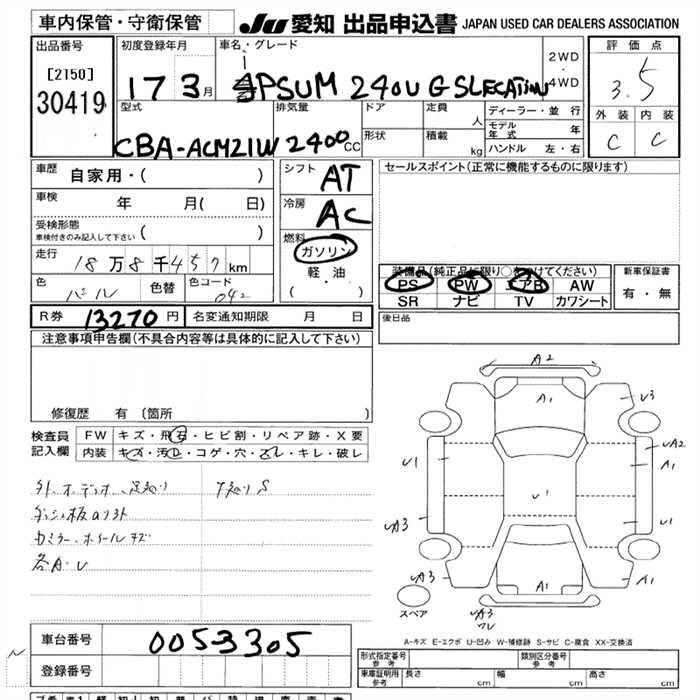 車内保管・守衛保管
JU 愛知 出品申込書 JAPAN USED CAR DEALERS ASSOCIATION
出品番号
[2150]
30419
初度登録年月
17 3月
車名・グレード
IPSUM 240U G SLECATION
2WD
・
4WD
評価点
3.5
外装 内装
C C
型式
CBA-ACM21W
排気量
2400 CC
ドア
形状
定員 人
積載 kg
ディーラー・並行
モデル年式 年
ハンドル 左・右
車歴
自家用・( )
車検
年 月( 日)
受検形態
車検付きのみ記入して下さい ( )
走行
18万8千457km
色
パール
色替
色コード
042
シフト
AT
冷房
AC
燃料
ガソリン
軽・油
( ・ )
セールスポイント(正常に機能するものに限ります)
装備品(純正品に限り○をつけてください)
PS PW エアB AW
SR ナビ TV カワシート
新車保証書
有・無
後日品
R券 13270円 名変通知期限 月 日
注意事項申告欄(不具合内容等は具体的に記入して下さい)
修復歴 有〔箇所 〕
検査員
記入欄
FW キズ・飛石・ヒビ割・リペア跡・X要
内装 キズ・汚れ・コゲ・穴・スレ・キレ・破レ
外.オーディオ、
S
ダッシュ板
ホイールキズ
各A.U
A2
A1
U3
UA2
A1
U1
U1
U1
UA3
UA3
A1
A1
UA3
ワレ
スペア
A-キズ E-エクボ U-凹み W-補修跡 S-サビ C-腐食 XX-交換済
車台番号
0053305
登録番号
形式指定番号
参考
類別区分番号
参考
車庫証明用
参考
長さ cm 幅 cm 高さ cm